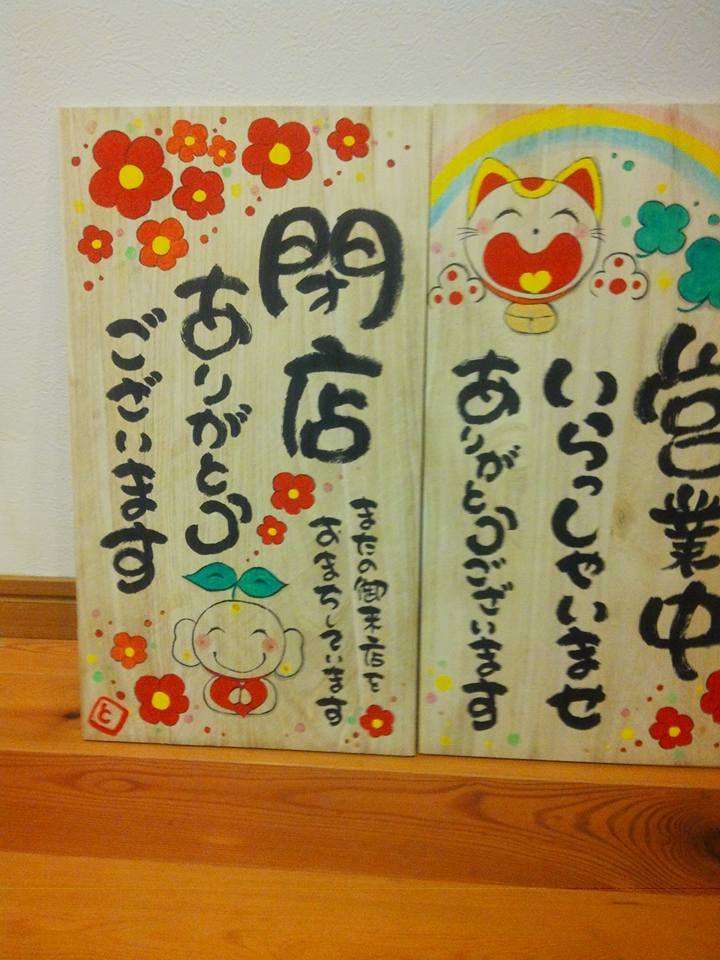 閉店
またの御来店を
おまちしています
ありがとう
ございます
と
営業中
いらっしゃいませ
ありがとうございます